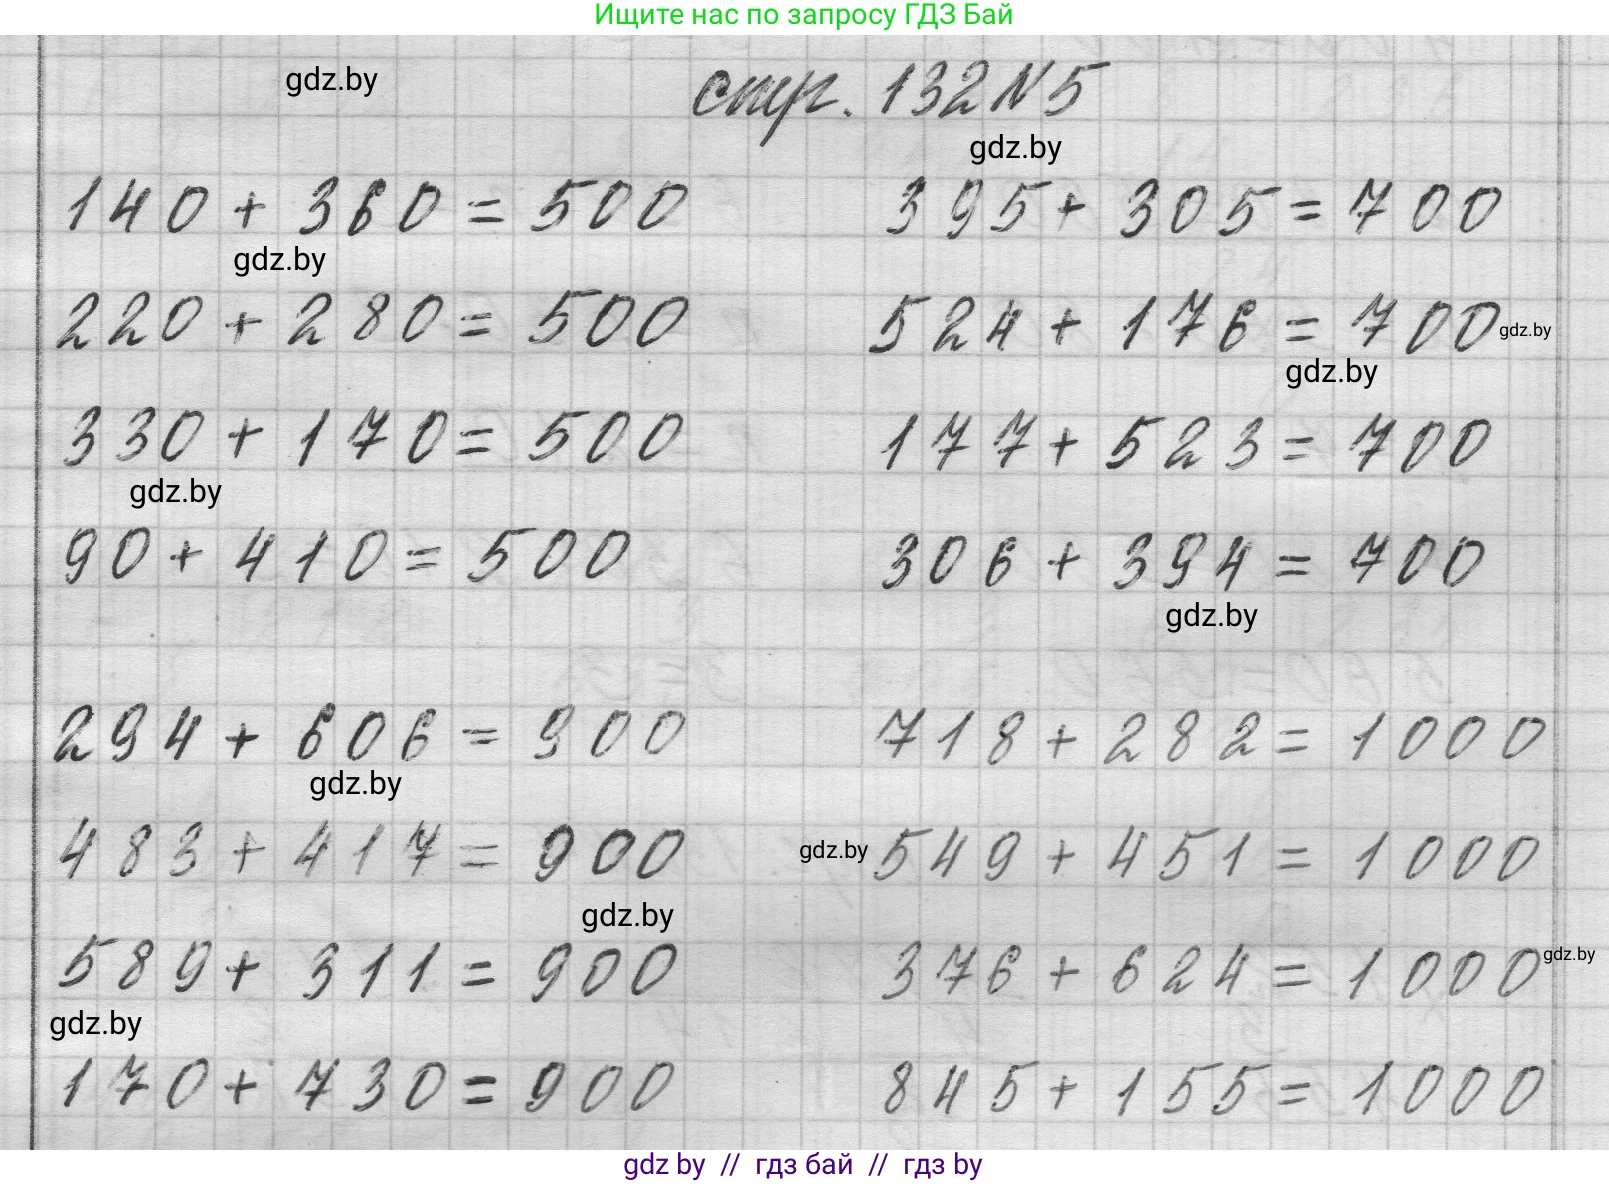 Ищите нас по запросу ГДЗ Бай
gdz.by
стр. 132 N 5
gdz.by
140 + 360 = 500
395 + 305 = 700
gdz.by
220 + 280 = 500
524 + 176 = 700
gdz.by
gdz.by
330 + 170 = 500
177 + 523 = 700
gdz.by
90 + 410 = 500
306 + 394 = 700
gdz.by
294 + 606 = 900
718 + 282 = 1000
gdz.by
483 + 417 = 900
gdz.by
549 + 451 = 1000
gdz.by
589 + 311 = 900
376 + 624 = 1000
gdz.by
gdz.by
170 + 730 = 900
845 + 155 = 1000
gdz by // гдз бай // гдз by